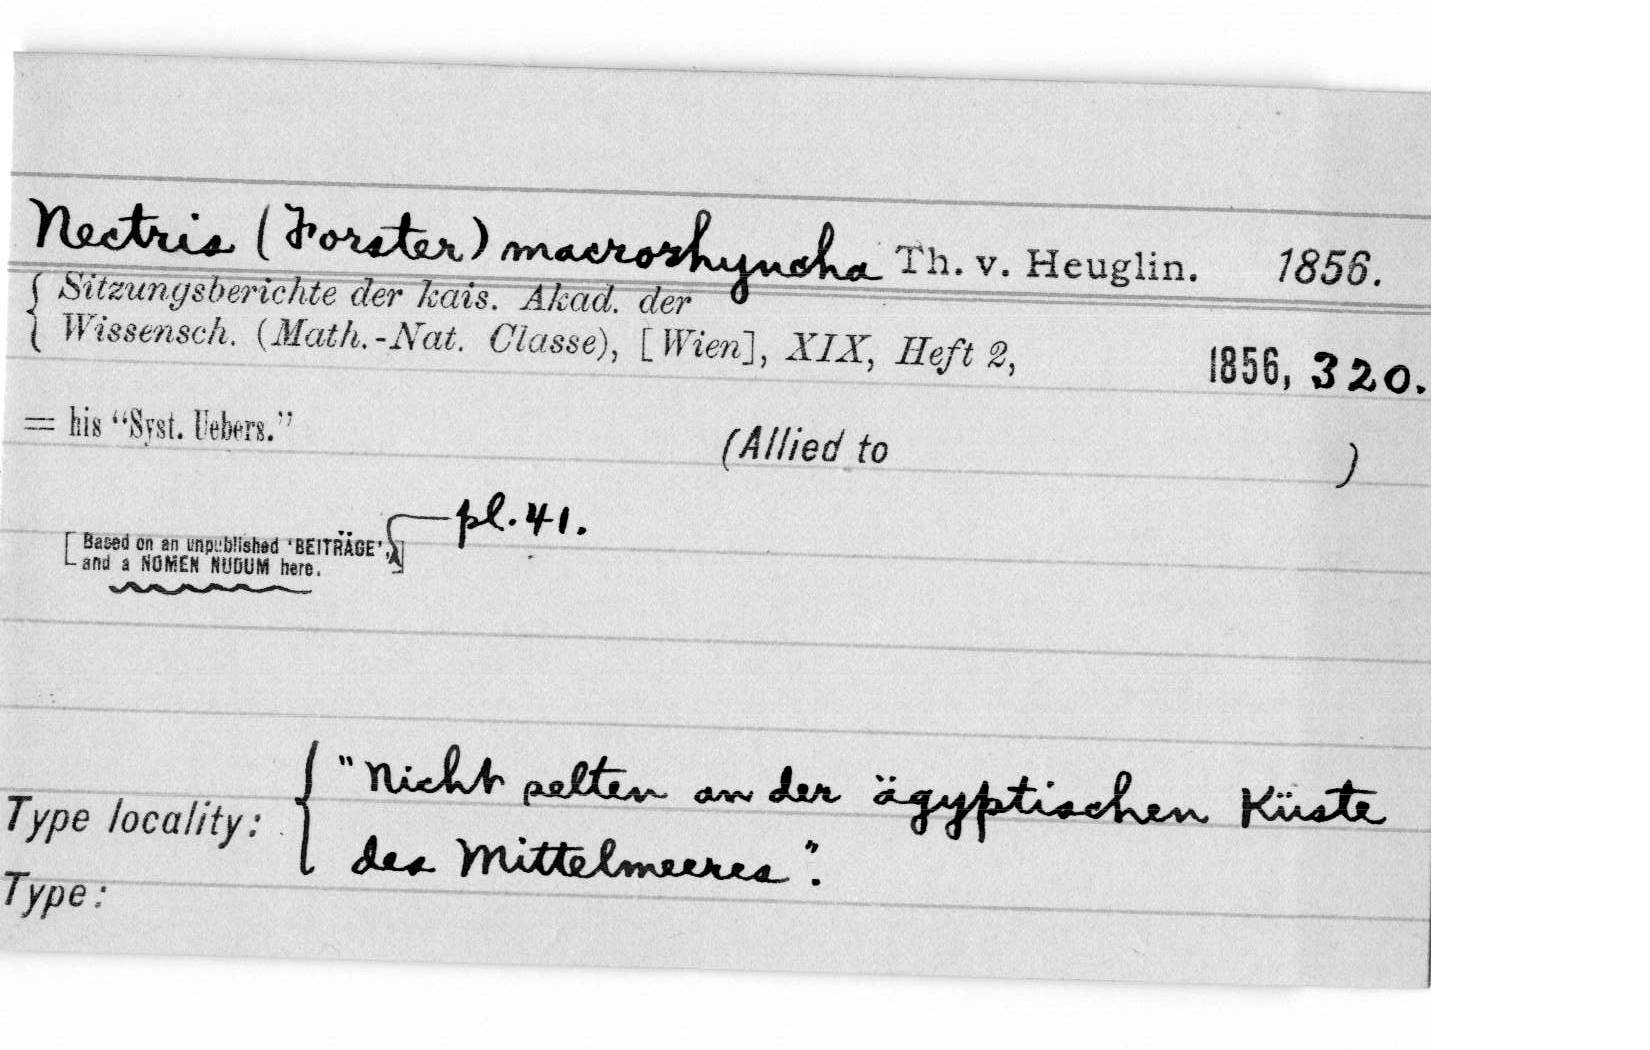 Nectris (Forster) macrorhyncha Th. v. Heuglin. 1856.
Sitzungsberichte der kais. Akad. der
Wissensch. (Math.-Nat. Classe), [Wien], XIX, Heft 2, 1856, 320.
= his “Syst. Uebers.” (Allied to )
pl. 41.
[Based on an unpublished ‘BEITRÄGE’,
and a NOMEN NUDUM here.]
Type locality: "Nicht selten an der ägyptischen Küste
des Mittelmeeres".
Type: